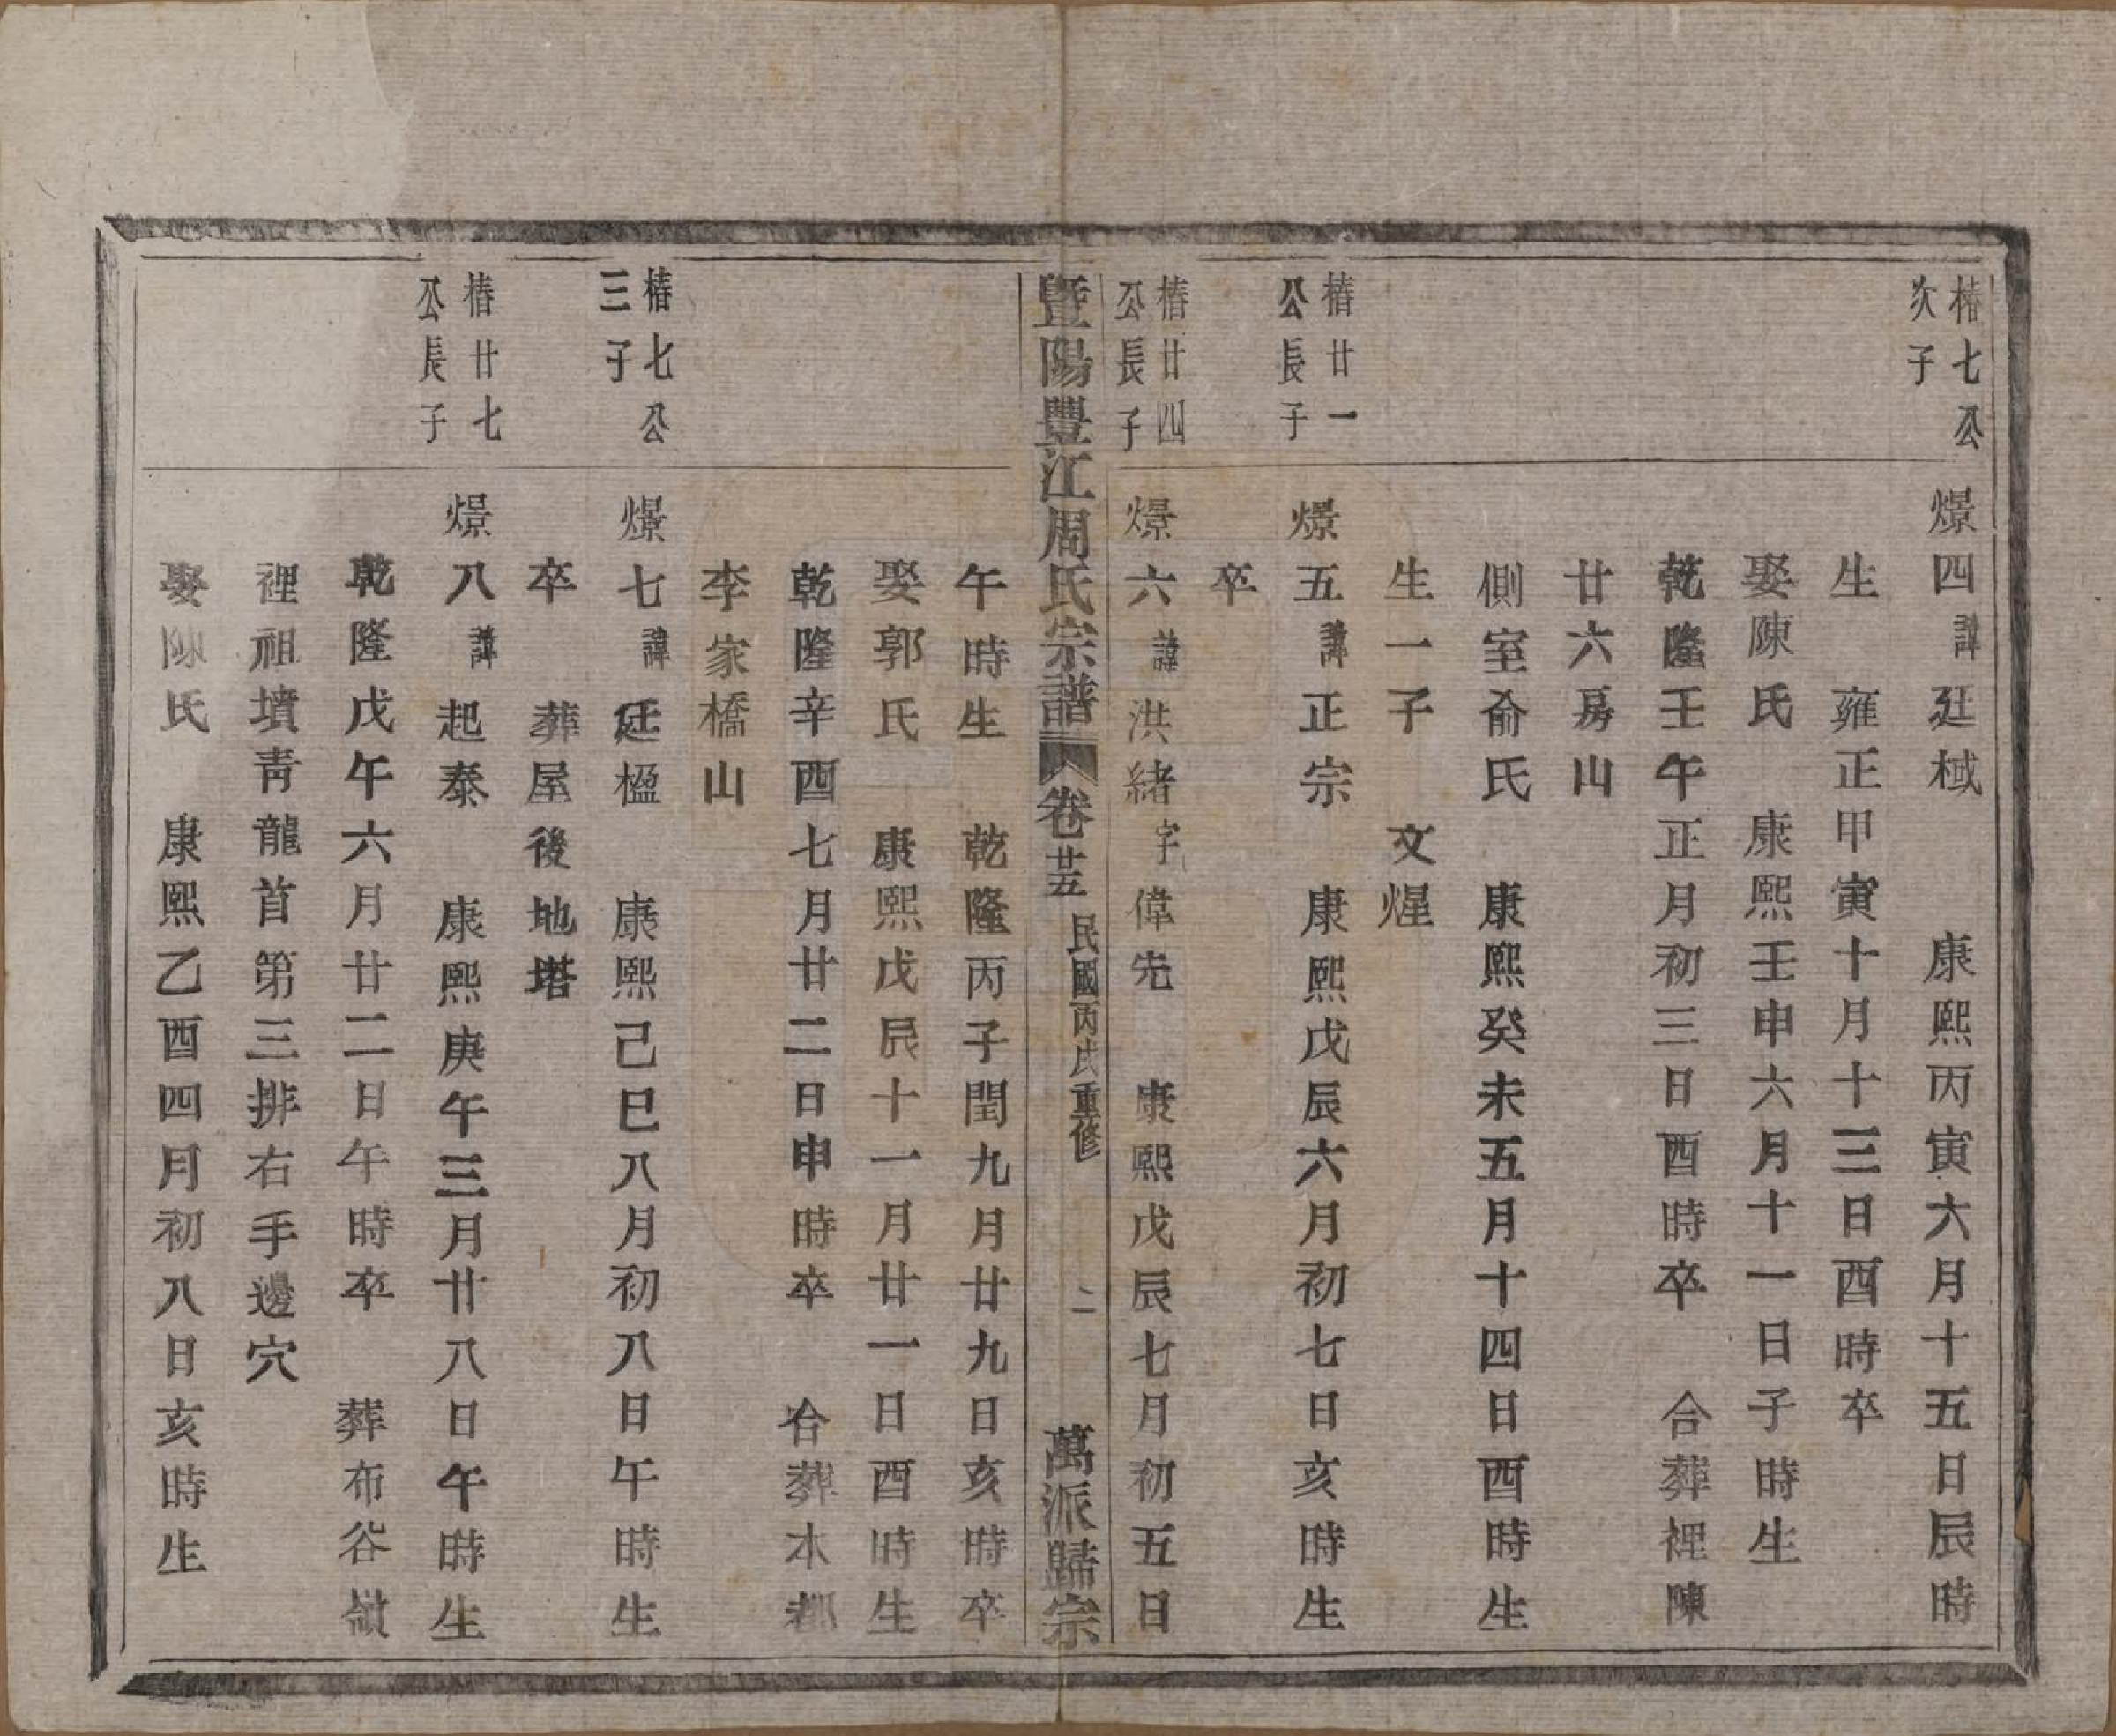 椿七公
次子
燝四諱廷棫 康熙丙寅六月十五日辰時
生 雍正甲寅十月十三日酉時卒
娶陳氏 康熙壬申六月十一日子時生
乾隆壬午正月初三日酉時卒 合葬裡陳
廿六房山
側室俞氏 康熙癸未五月十四日酉時生
生一子 文煋
椿廿一
公長子
燝五諱正宗 康熙戊辰六月初七日亥時生
卒
椿廿四
公長子
燝六諱洪緒字偉先 康熙戊辰七月初五日
暨陽豐江周氏宗譜 卷廿五 民國丙戌重修 二 萬派歸宗
午時生 乾隆丙子閏九月廿九日亥時卒
娶郭氏 康熙戊辰十一月廿一日酉時生
乾隆辛酉七月廿二日申時卒 合葬本都
李家橋山
椿七公
三子
燝七諱廷楹 康熙己巳八月初八日午時生
卒 葬屋後地塔
椿廿七
公長子
燝八諱起泰 康熙庚午三月廿八日午時生
乾隆戊午六月廿二日午時卒 葬布谷嶺
裡祖墳青龍首第三排右手邊穴
娶陳氏 康熙乙酉四月初八日亥時生